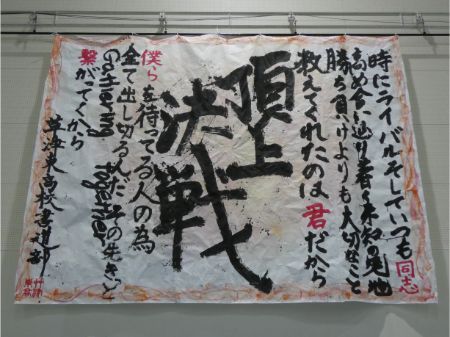 時にライバルそしていつも同志
高め合い辿り着く未知見地
勝ち負けよりも大切なこと
教えてくれたのは君だから
頂上
決戦
僕らを待ってる人の為
全て出し切るんだその先きっと
Gathering together
繋がってくから
草津東高校書道部